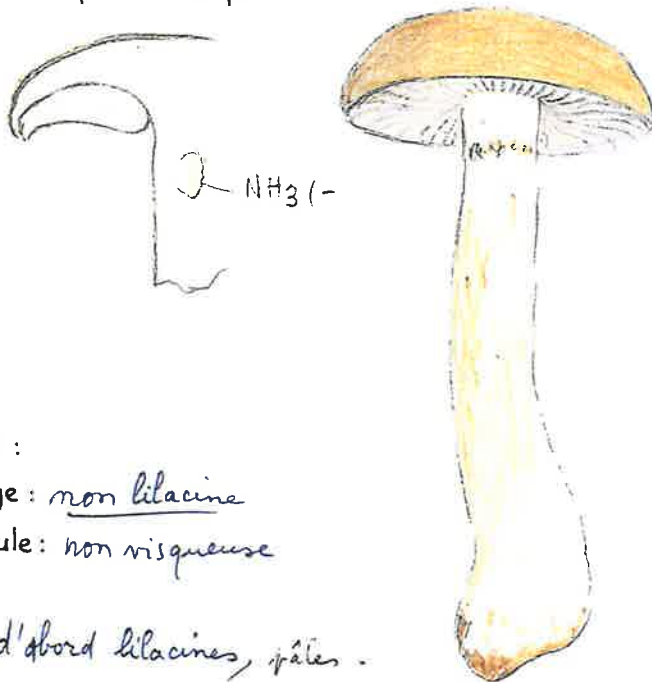 NH3 (-
:
ge : non lilacine
ule : non visqueuse
d'abord lilacines, pâles.